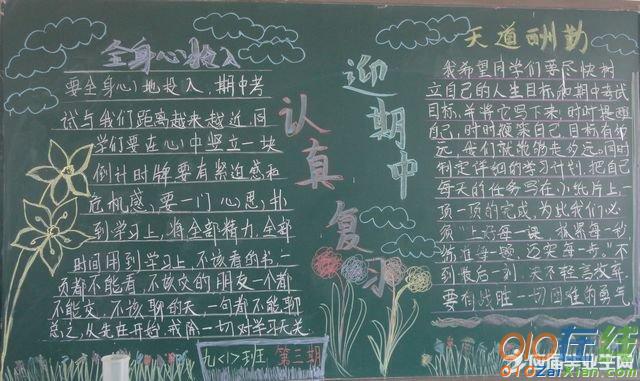 全身心投入
要全身心地投入，期中考
试与我们距离越来越近，同
学们要在心中竖立一块
倒计时牌要有紧迫感和
危机感，要一门心思，扑
到学习上，将全部精力，全部
时间用到学习上，不该看的书一
页都不能看，不该交的朋友一个都
不能交，不该聊的天，一句都不能聊
总之，从现在开始，戒除一切对学习无关
迎期中
认真复习
天道酬勤
我希望同学们要尽快树
立自己的人生目标和期中考试
目标，并将它写下来，时时提醒
自己，时时鞭策自己，目标有多
远，我们就能够走多远。同时
制定详细的学习计划，把自
每天的任务写在小纸片上，一
项一项的完成，为此我们必
须"上好每一课，抓紧每一秒
到最后一刻，决不轻言放弃，
要有战胜一切困难的勇气
九<1>班 第三期
910在线
910zaixian.com
应届毕业生网